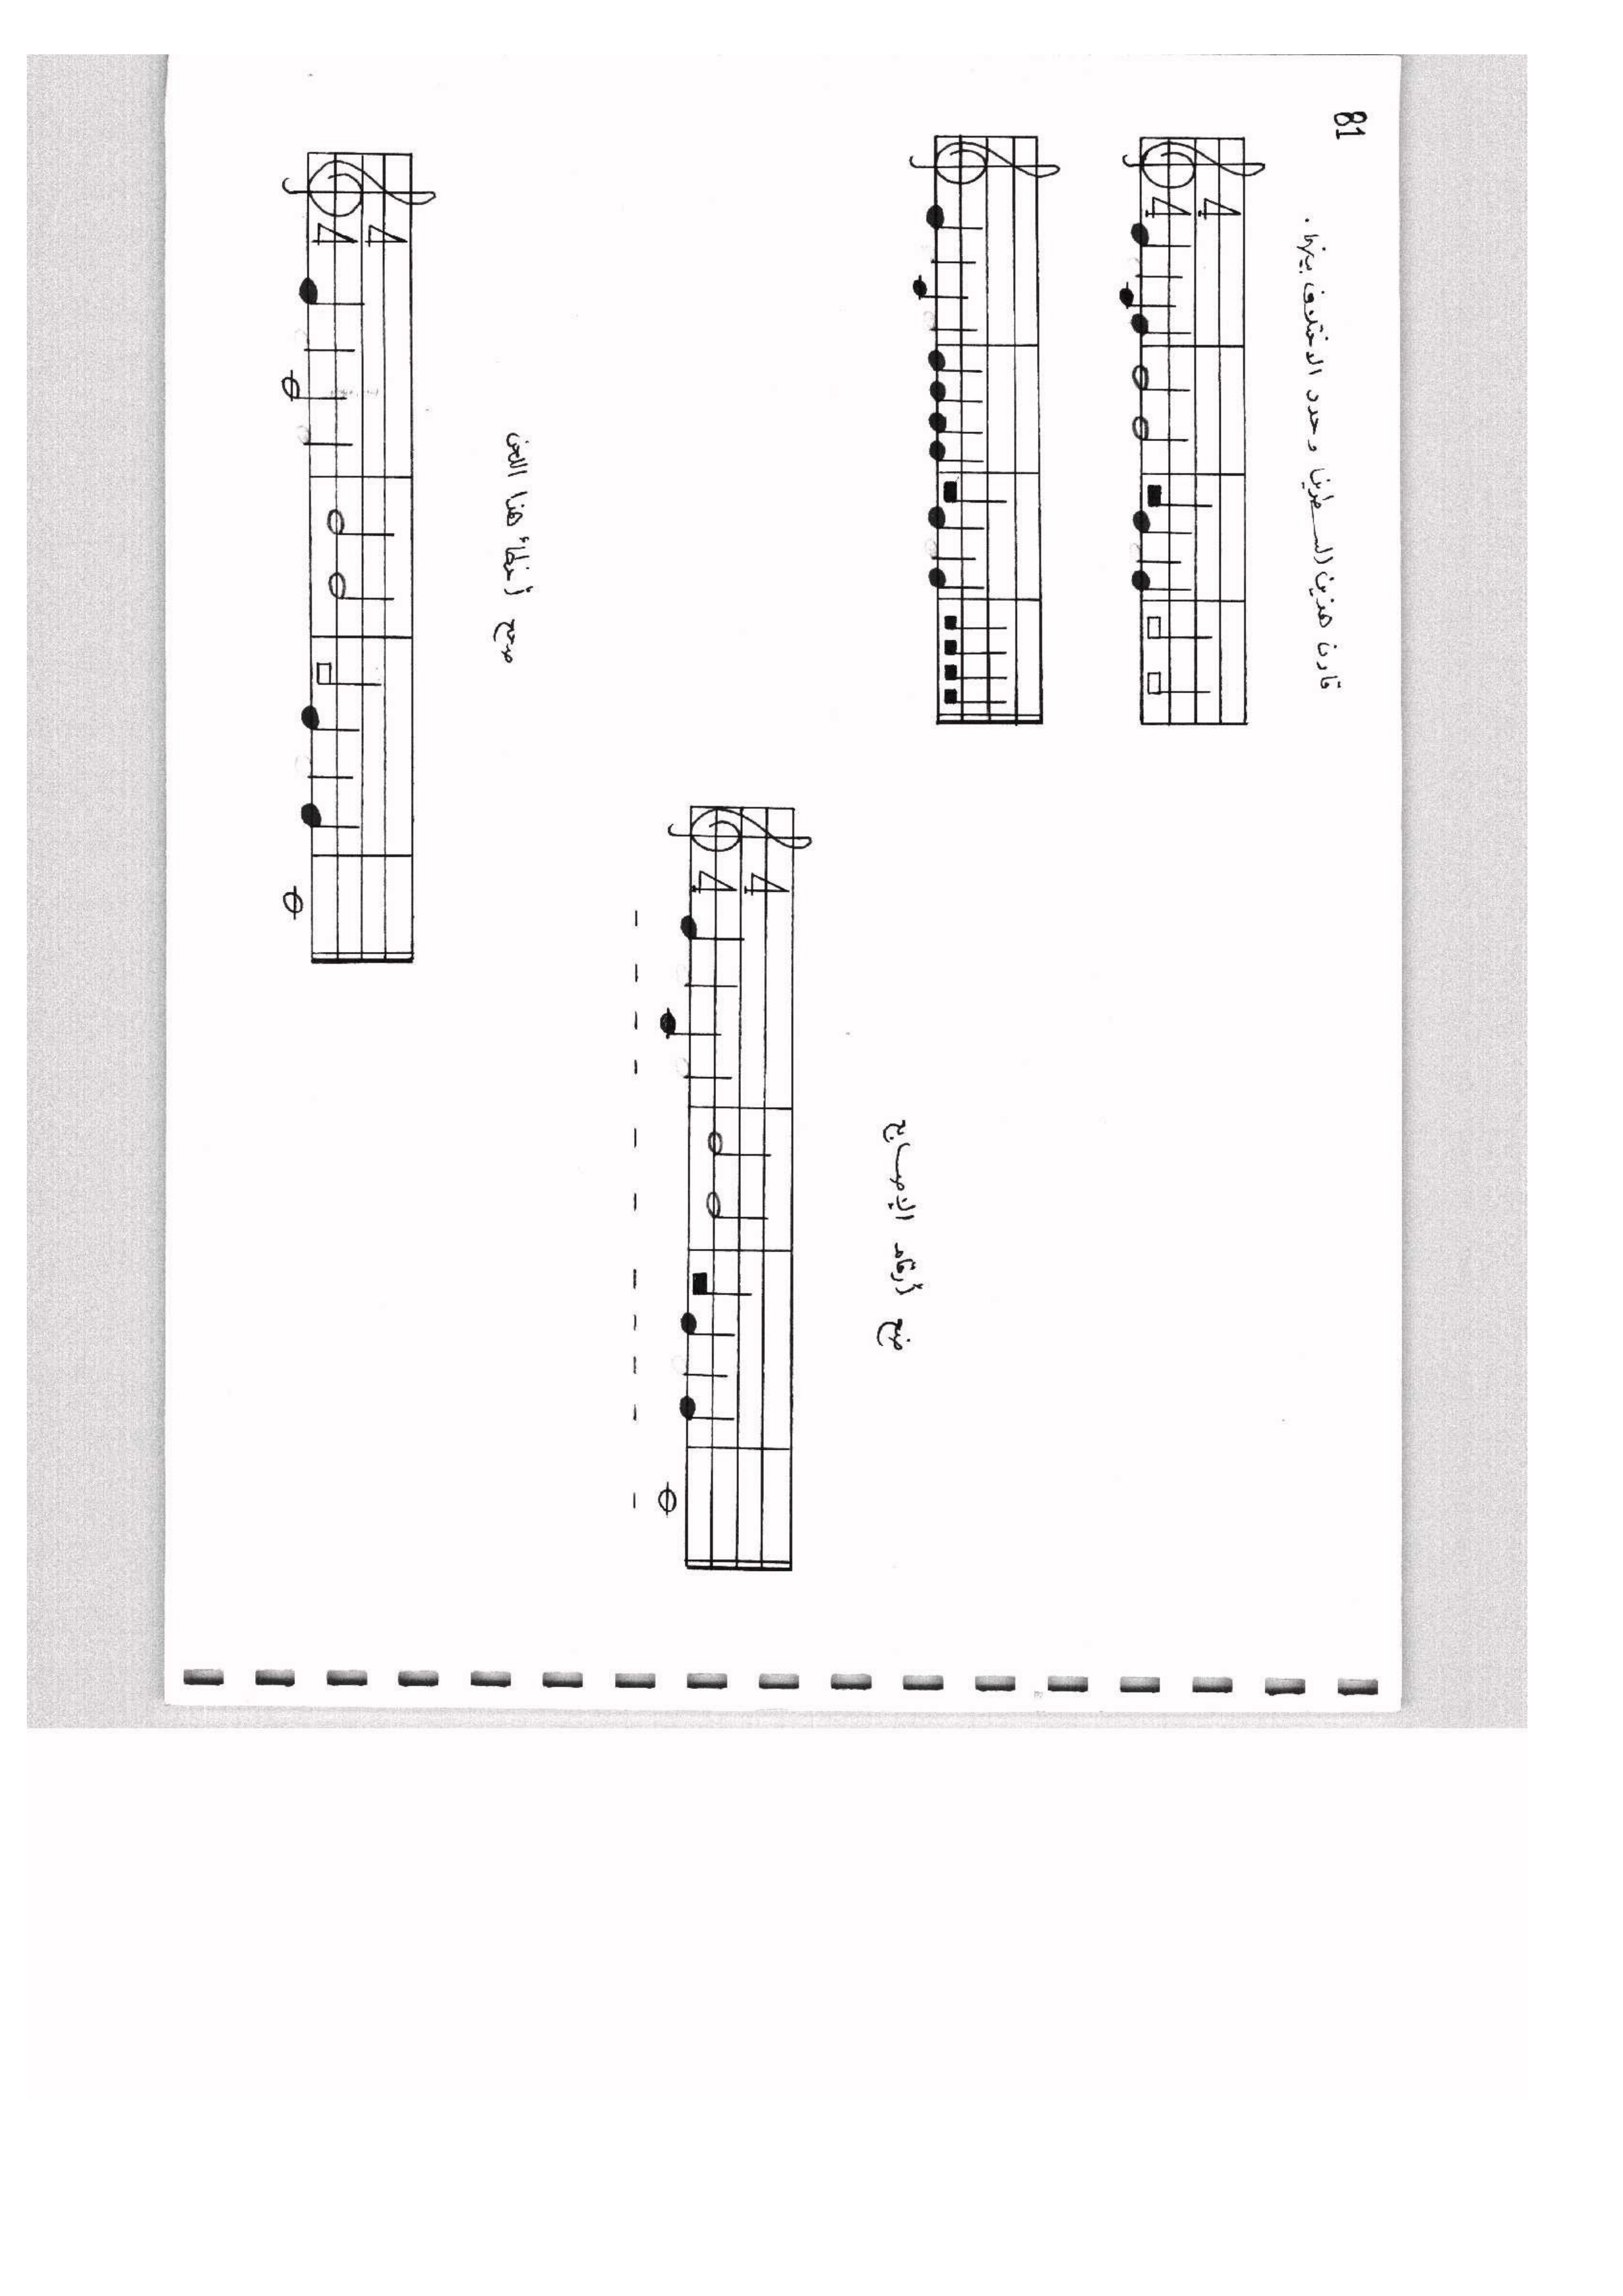 81
قارن هذين السطرين وحدد الاختلاف بينها.
4
4
ضع أرقام الإصابع
4
4
صحح أخطاء هذا اللحن
4
4